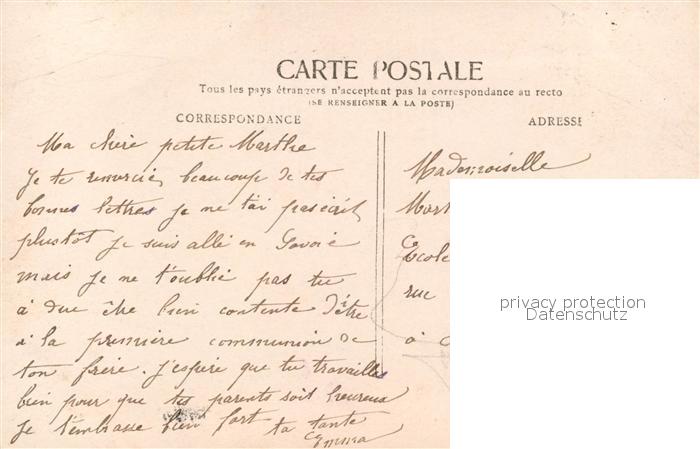 CARTE POSTALE
Tous les pays étrangers n'acceptent pas la correspondance au recto
(SE RENSEIGNER A LA POSTE)
CORRESPONDANCE
ADRESSE
Ma chère petite Marthe
Je te remercie beaucoup de tes
bonnes lettres je ne t'ai pas écrit
plustôt je suis allé en Savoie
mais je ne t'oublié pas tu
à due être bien contente d'être
à la première communion de
ton frère. j'espère que tu travailles
bien pour que tes parents soit heureux
Je t'embrasse bien fort ta tante
Emma
Mademoiselle
Mart
Ecole
rue
à
privacy protection
Datenschutz